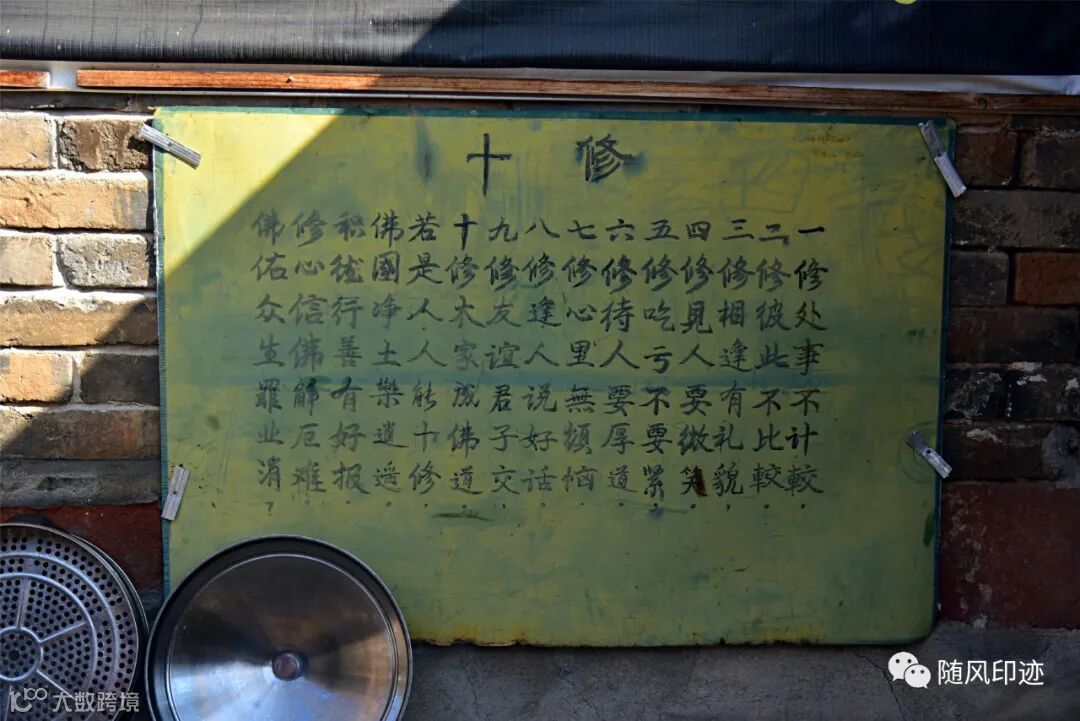 十修
一修处事不计較，
二修彼此不比較。
三修相逢有礼貌，
四修見人要微笑。
五修吃亏不要緊，
六修待人要厚道。
七修心里無煩恼，
八修逢人说好话。
九修友谊君子交，
十修大家成佛道。
若是人人能十修，
佛國净土樂逍遥。
积德行善有好报，
修心信佛解厄难。
佛佑众生罪业消？
大数跨境
随风印迹